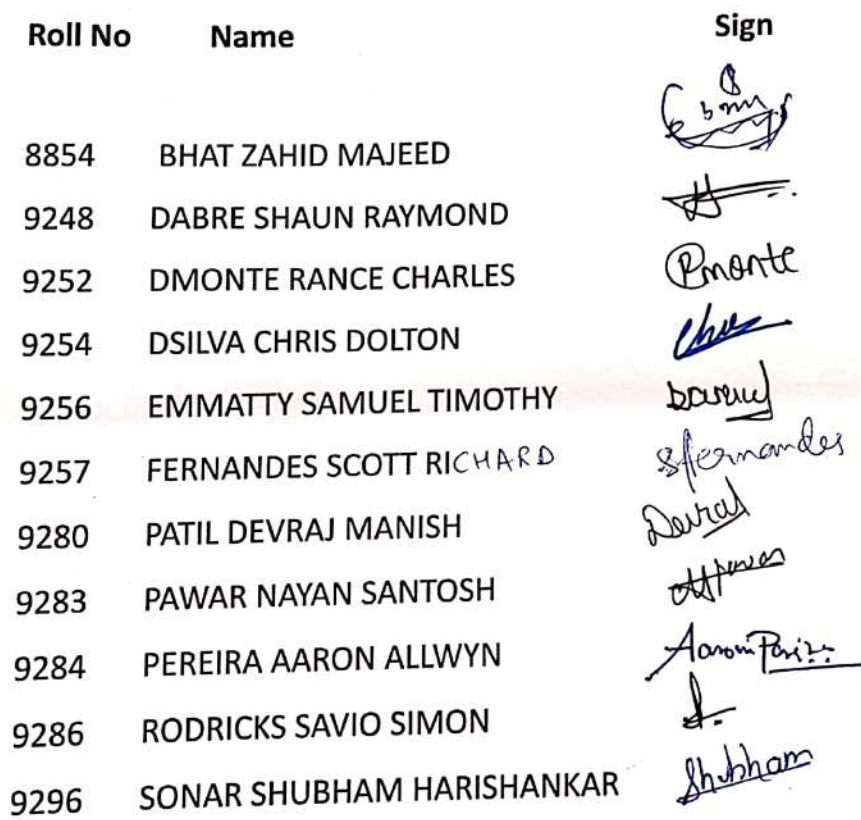 Roll No Name Sign
8854 BHAT ZAHID MAJEED
9248 DABRE SHAUN RAYMOND
9252 DMONTE RANCE CHARLES Dmonte
9254 DSILVA CHRIS DOLTON Chris
9256 EMMATTY SAMUEL TIMOTHY
9257 FERNANDES SCOTT RICHARD Sfernandes
9280 PATIL DEVRAJ MANISH Devraj
9283 PAWAR NAYAN SANTOSH
9284 PEREIRA AARON ALLWYN
9286 RODRICKS SAVIO SIMON
9296 SONAR SHUBHAM HARISHANKAR Shubham